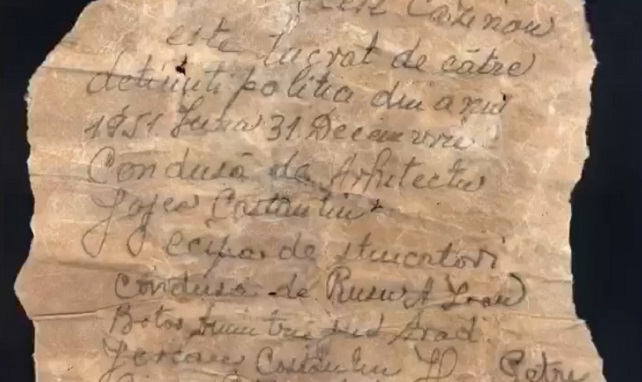 Cazinou
este lugrat de către
detinuti politici din anii
1951 Luna 31 Decemvrie
Condusă de Arhitectu
Joja Costantin
ecipa de stucatori
condusă de Rusu A Ioan
Botos Dumitru din Arad.
Costantin Petre